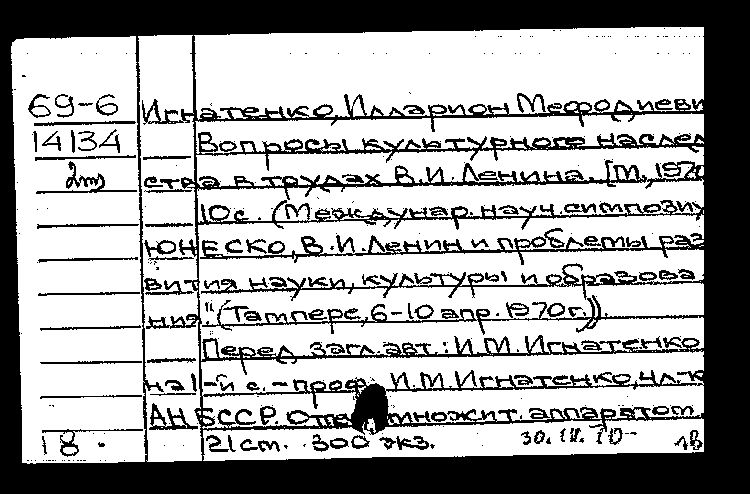 69-6 Игнатенко, Илларион Мефодиеви
14134 Вопросы культурного наслед
2тт ства в трудах В.И. Ленина. [М., 1970
10 с. (Междунар. науч. симпозиу
ЮНЕСКО, В.И. Ленин и проблемы раз
вития науки, культуры и образова
ния." (Тампере, 6-10 апр. 1970г.)).
Перед загл. авт.: И.М. Игнатенко
на 1-й с. - проф. И.М. Игнатенко, чл.-к
АН БССР. множит. аппаратом.
18. 21 см. 300 экз. 30.IV.70- 1в